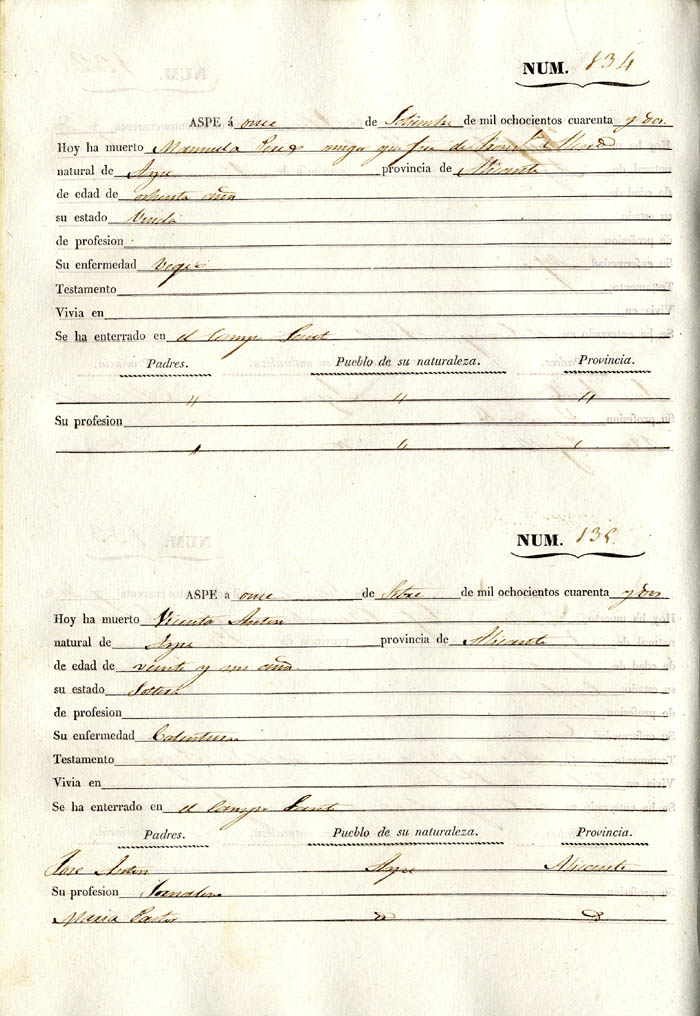 NUM. 134
ASPE á once de Setiembre de mil ochocientos cuarenta y dos
Hoy ha muerto Manuela Perez muger que fue de
natural de Aspe provincia de Alicante
de edad de ochenta años
su estado Viuda
de profesion
Su enfermedad Vegez
Testamento
Vivia en
Se ha enterrado en el Campo Santo
Padres. Pueblo de su naturaleza. Provincia.
" " "
Su profesion
" " "
NUM. 135
ASPE a once de Setbre de mil ochocientos cuarenta y dos
Hoy ha muerto Vicenta Anton
natural de Aspe provincia de Alicante
de edad de veinte y un años
su estado Soltera
de profesion
Su enfermedad Calentura
Testamento
Vivia en
Se ha enterrado en el Campo Santo
Padres. Pueblo de su naturaleza. Provincia.
Jose Anton Aspe Alicante
Su profesion Jornalero
Maria Pastor